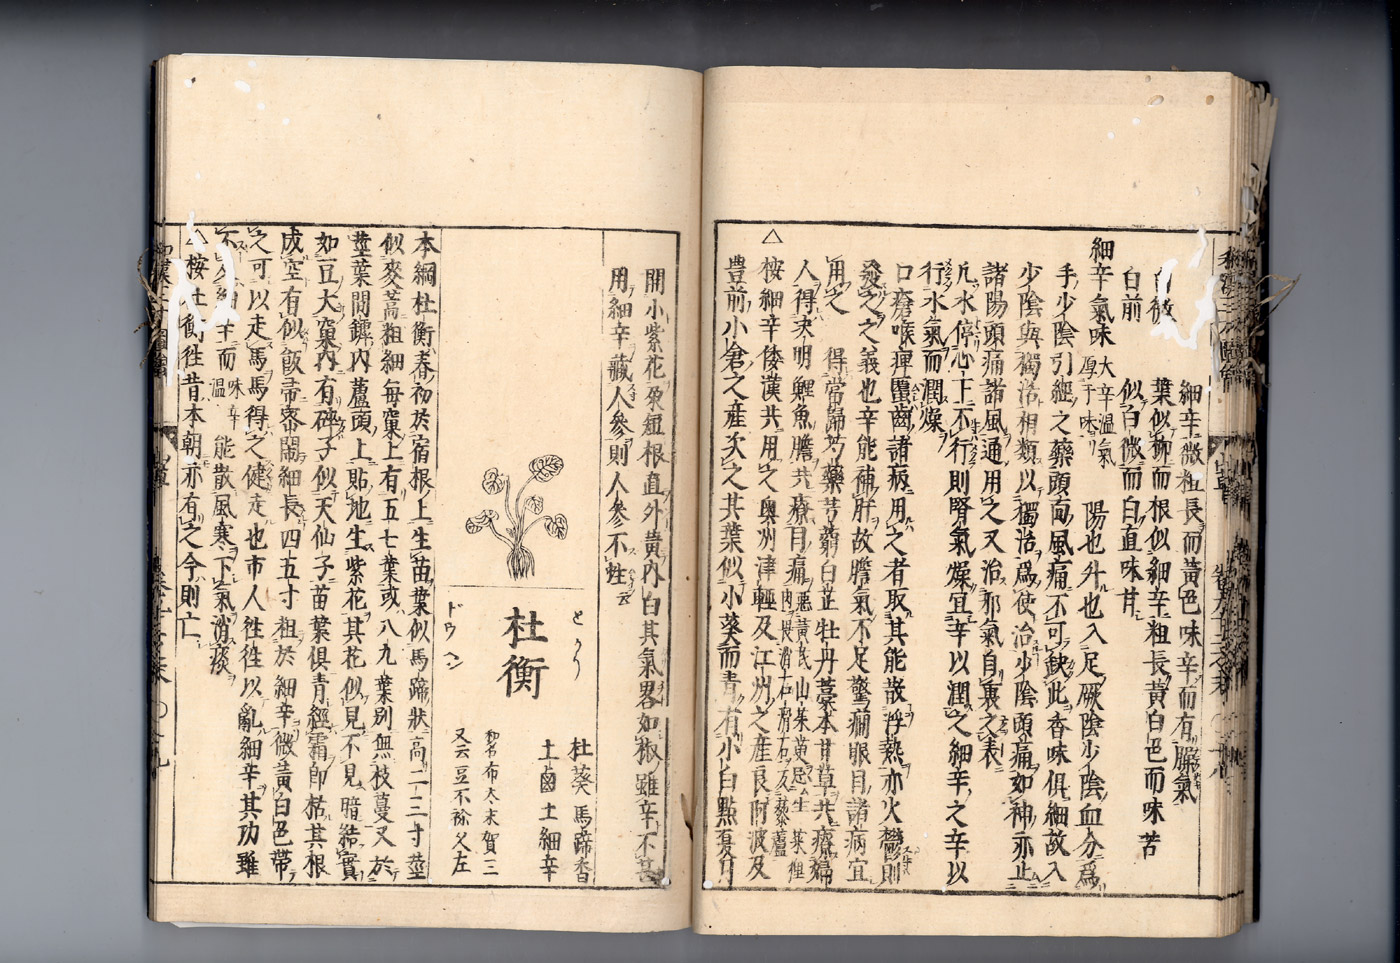 細辛微粗長而黃色味辛而有臊氣
白薇 葉似柳而根似細辛粗長黃白色而味苦
白前 似白微而白直味甘
細辛氣味 大辛溫氣厚于味 陽也升也入足厥陰少陰血分爲
手少陰引經之藥頭面風痛不可缺此香味俱細故入
少陰與獨活相類以獨活爲使治少陰頭痛如神亦止
諸陽頭痛諸風通用之又治邪氣自裏之表
凡水停心下不行則腎氣燥宜辛以潤之細辛之辛以
行水氣而潤燥
口瘡喉痺䘌齒諸病用之者取其能散浮熱亦火鬱則
發之之義也辛能補肝故膽氣不足驚癇眼目諸病宜
用之 得當歸芍藥芎藭白芷牡丹藁本甘草共療婦
人得决明鯉魚膽共療目痛 惡黃芪山茱萸忌生菜狸肉畏消石滑石反藜蘆
△按細辛倭漢共用之奧洲津輕及江州之産良阿波及
豊前小倉之產次之其葉似小葵而青有小白點夏月
開小紫花眾短根直外黃內白其氣畧如椒雖辛不甚
用細辛藏人參則人參不蛀云
杜衡
とかり
ドウヘン
杜葵 馬蹄香
土鹵 土細辛
和名布太末賀三
又云豆不祢久左
本綱杜衡春初於宿根上生苗葉似馬蹄狀高二三寸莖
似麥蒿粗細每窠上有五七葉或八九葉別無枝蔓又於
莖葉間罅內蘆頭上貼地生紫花其花似見不見暗結實
如豆大窠內有碎子似天仙子苗葉俱青經霜卽枯其根
成空有似飯帚密鬧細長四五寸粗於細辛微黃白色帶
之可以走馬馬得之健走也市人徃徃以亂細辛其功雖
不及細辛而 味辛溫 能散風寒下氣消痰
△按杜衡徃昔本朝亦有之今則亡